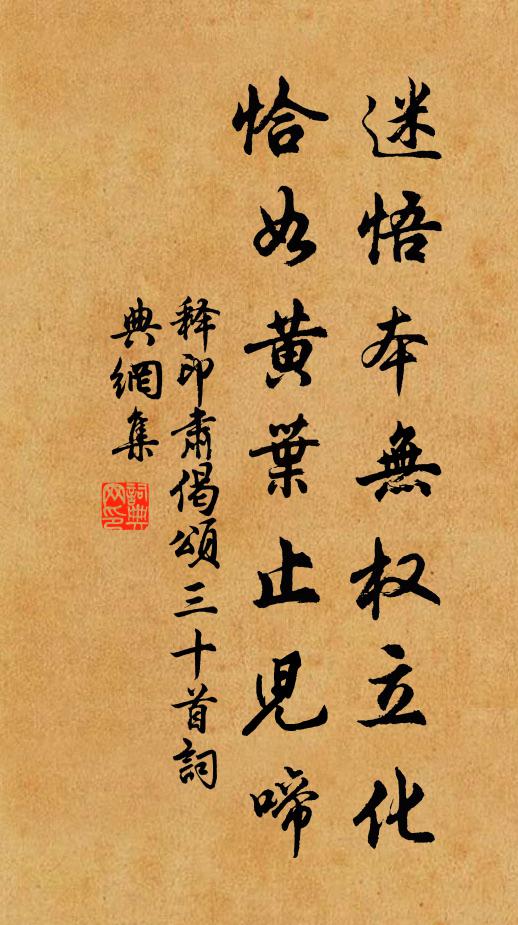 迷悟本無权立化
恰如黄葉止兒啼
释印肅偈頌三十首詞
典網集
詞典
网印